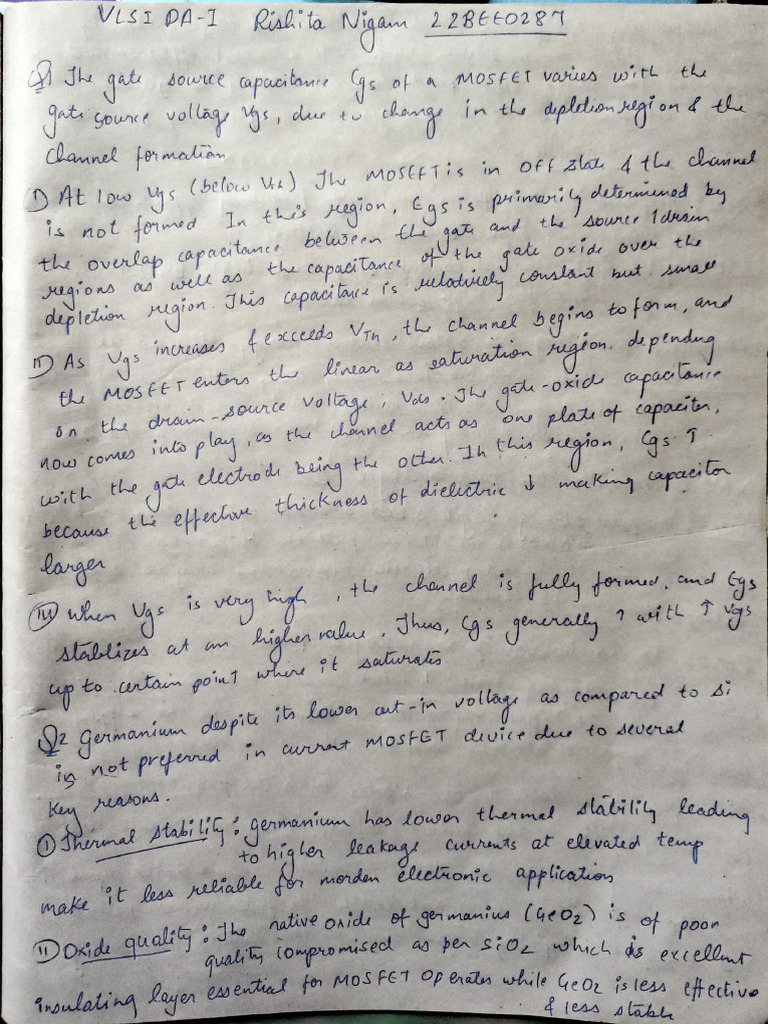 VLSI DA-I Rishita Nigam 22BEE0287
Q1 The gate source capacitance Cgs of a MOSFET varies with the
gate source voltage Vgs, due to change in the depletion region & the
channel formation
I) At low Vgs (below Vth) The MOSEFT is in OFF state & the channel
is not formed In this region, Cgs is primarily determined by
the overlap capacitance between the gate and the source / drain
regions as well as the capacitance of the gate oxide over the
depletion region. This capacitance is relatively constant but small
II) As Vgs increases & exceeds VTh, the channel begins to form, and
the MOSFET enters the linear as saturation region. depending
on the drain-source voltage, Vds. The gate-oxide capacitance
now comes into play, as the channel acts as one plate of capacitor,
with the gate electrode being the other. In this region, Cgs ↑
because the effective thickness of dielectric ↓ making capacitor
larger
III) When Vgs is very high, the channel is fully formed, and Cgs
stablizes at an higher value. Thus, Cgs generally ↑ with ↑ Vgs
up to certain point where it saturates
Q2 Germanium despite its lower cut-in voltage as compared to Si
is not preferred in current MOSFET device due to several
key reasons.
I) Thermal stability: germanium has lower thermal stability leading
to higher leakage currents at elevated temp
make it less reliable for morden electronic application
II) Oxide quality: The native oxide of germanius (GeO2) is of poor
quality compromised as per SiO2 which is excellent
insulating layer essential for MOSFET operates while GeO2 is less effective
& less stable